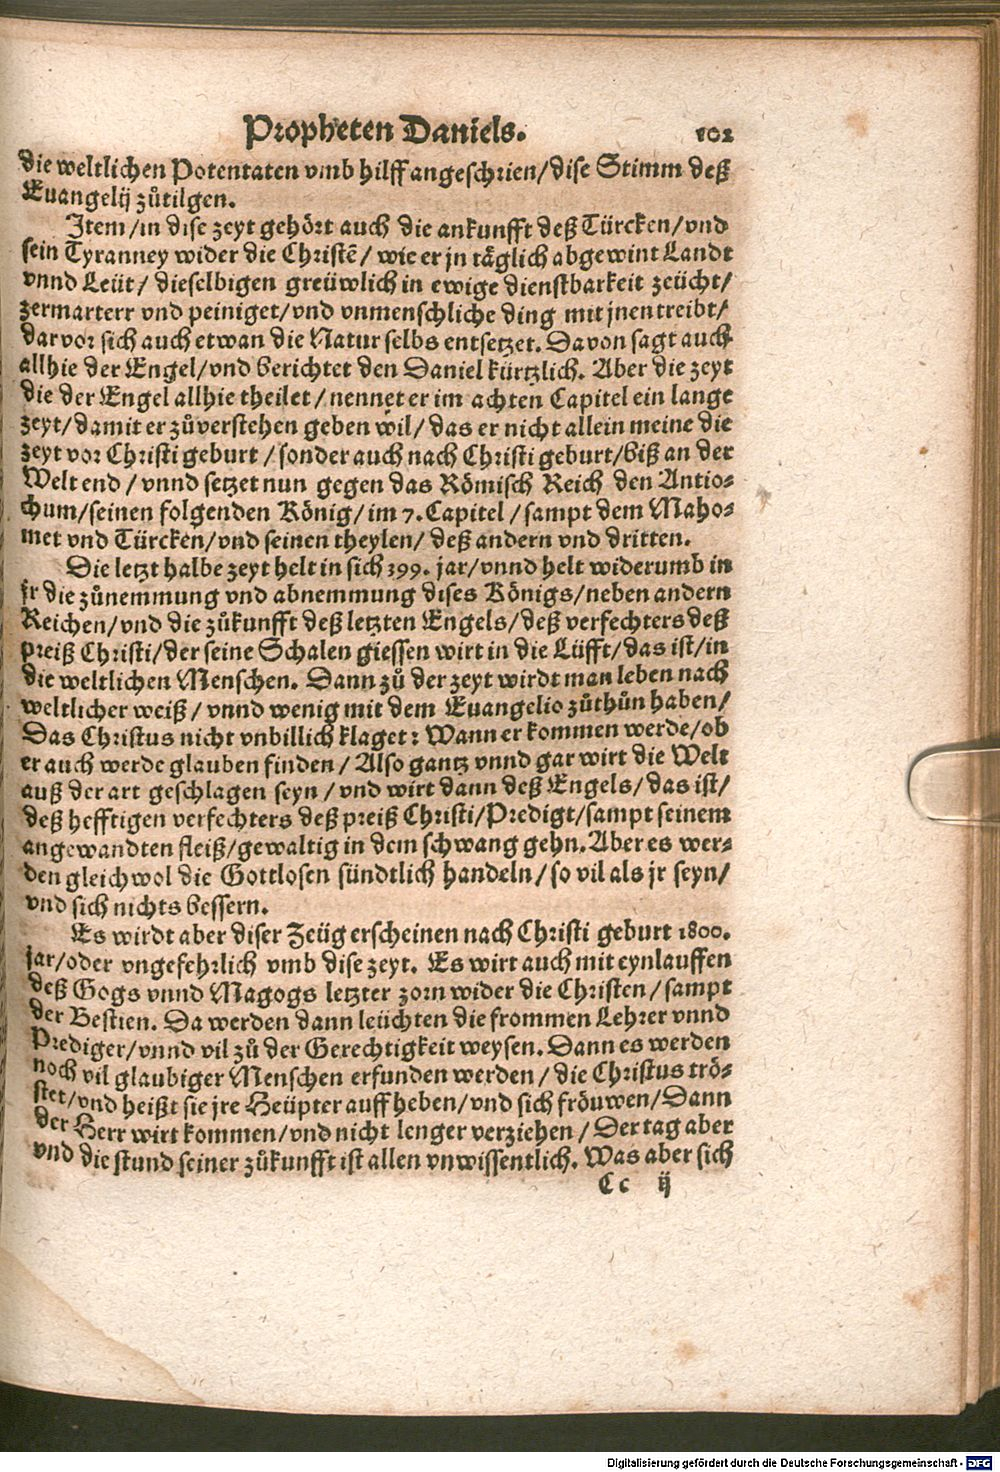 Propheten Daniels. 102
die weltlichen Potentaten vmb hilff angeschrien/dise Stimm deß
Euangelij zůtilgen.
Item/in dise zeyt gehört auch die ankunfft deß Türcken/vnd
sein Tyranney wider die Christē/ wie er jn täglich abgewint Landt
vnnd Leüt/ dieselbigen greüwlich in ewige dienstbarkeit zeücht/
zermarterr vnd peiniget/vnd vnmenschliche ding mit jnen treibt/
darvor sich auch etwan die Natur selbs entsetzet. Davon sagt auch
allhie der Engel/vnd berichtet den Daniel kürtzlich. Aber die zeyt
die der Engel allhie theilet/ nennet er im achten Capitel ein lange
zeyt/damit er zůverstehen geben wil/das er nicht allein meine die
zeyt vor Christi geburt/sonder auch nach Christi geburt/biß an der
Welt end/ vnnd setzet nun gegen das Römisch Reich den Antio-
chum/seinen folgenden König/im 7. Capitel/sampt dem Maho-
met vnd Türcken/vnd seinen theylen/ deß andern vnd dritten.
Die letzt halbe zeyt helt in sich 399. jar/vnnd helt widerumb in
jr die zůnemmung vnd abnemmung dises Königs/neben andern
Reichen/vnd die zůkunfft deß letzten Engels/deß verfechters deß
preiß Christi/der seine Schalen giessen wirt in die Lüfft/das ist/in
die weltlichen Menschen. Dann zů der zeyt wirdt man leben nach
weltlicher weiß/ vnnd wenig mit dem Euangelio zůthůn haben/
Das Christus nicht vnbillich klaget: Wann er kommen werde/ob
er auch werde glauben finden/ Also gantz vnnd gar wirt die Welt
auß der art geschlagen seyn/vnd wirt dann deß Engels/das ist/
deß hefftigen verfechters deß preiß Christi/Predigt/sampt seinem
angewandten fleiß/gewaltig in dem schwang gehn. Aber es wer-
den gleichwol die Gottlosen sündtlich handeln/so vil als jr seyn/
vnd sich nichts bessern.
Es wirdt aber diser Zeüg erscheinen nach Christi geburt 1800.
jar/oder vngefehrlich vmb dise zeyt. Es wirt auch mit eynlauffen
deß Gogs vnnd Magogs letzter zorn wider die Christen/sampt
der Bestien. Da werden dann leüchten die frommen Lehrer vnnd
Prediger/vnnd vil zů der Gerechtigkeit weysen. Dann es werden
noch vil glaubiger Menschen erfunden werden/die Christus trö-
stet/vnd heißt sie jre Heüpter auffheben/vnd sich fröuwen/Dann
der Herr wirt kommen/vnd nicht lenger verziehen/ Der tag aber
vnd die stund seiner zůkunfft ist allen vnwissentlich. Was aber sich
Cc ij
Digitalisierung gefördert durch die Deutsche Forschungsgemeinschaft - DFG